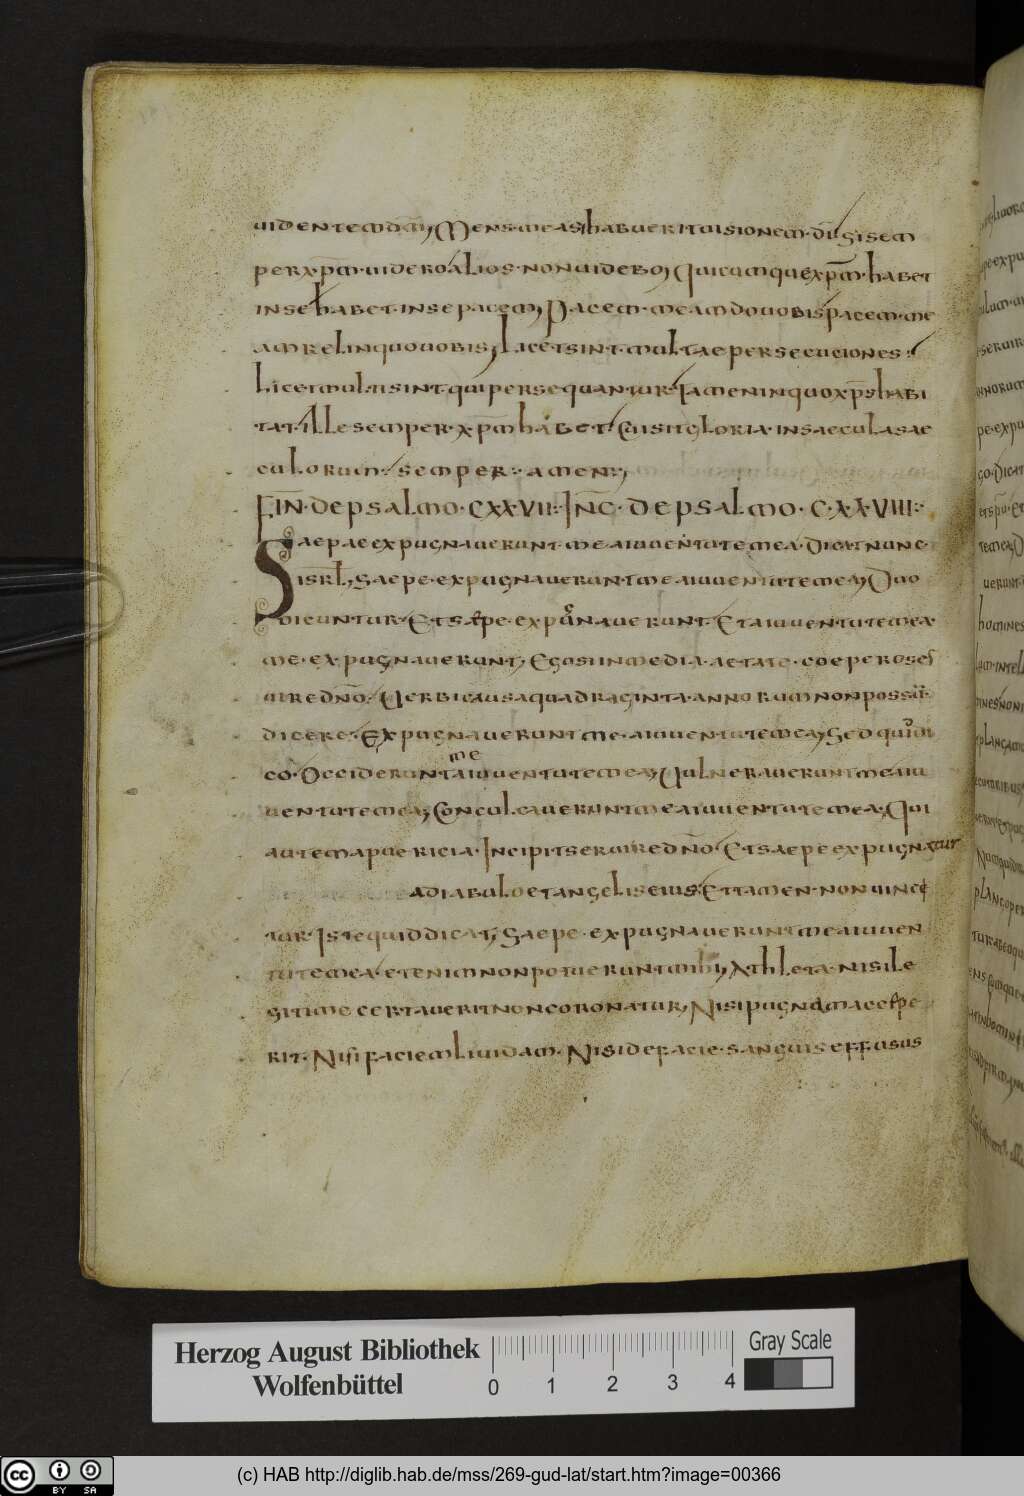 uidentem dm̄; Mens mea si habuerit uisionem · dn̄i · si sem
per · xp̄m · uidero · alios · non uidebo; Quicumque xp̄m · habet
in se habet · in se pacem; Pacem · meam do uobis pacem · me
am relinquo uobis; Licet sint multae persecuciones ·
Licet multi sint qui persequantur · Tamen in quo xp̄s habi
tat · ille semper · xp̄m habet · Cui sit gloria · in saecula sae
culorum · semper · amen ;
FIN̄ · DE PSALMO · CXXVII · INC̄ · DE PSALMO · CXXVIII ·
Saepae expugnauerunt · me a iuuentute mea · Dicat nunc ·
isrl̄; Saepe · expugnauerunt me a iuuentute mea; Duo
dicuntur · Et saepe · expugnauerunt · Et a iuuentute mea
me · expugnauerunt; Ego si in media · aetate · coepero ser
uire dn̄o · Uerbi causa quadraginta · annorum non possū
dicere · Expugnauerunt me · a iuuentute mea; Sed quid di
co · Occiderunt a iuuentute mea; Uulnerauerunt me a iu
me
uentute mea; Conculcauerunt me a iuuentute mea; Qui
autem a puericia · Incipit seruire dn̄o · Et saepe expugnatur
a diabulo et angelis eius · Et tamen · non uinci
tur · Iste quid dicat; Saepe · expugnauerunt me a iuuen
tute mea · etenim non potuerunt mihi; Athleta · nisi le
gitime certauerit non coronatur; Nisi pugnam acepe
rit · Nisi faciem liuidam · Nisi de facie · sanguis effusus
Herzog August Bibliothek
Wolfenbüttel
0 1 2 3 4
Gray Scale
cc BY SA
(c) HAB http://diglib.hab.de/mss/269-gud-lat/start.htm?image=00366